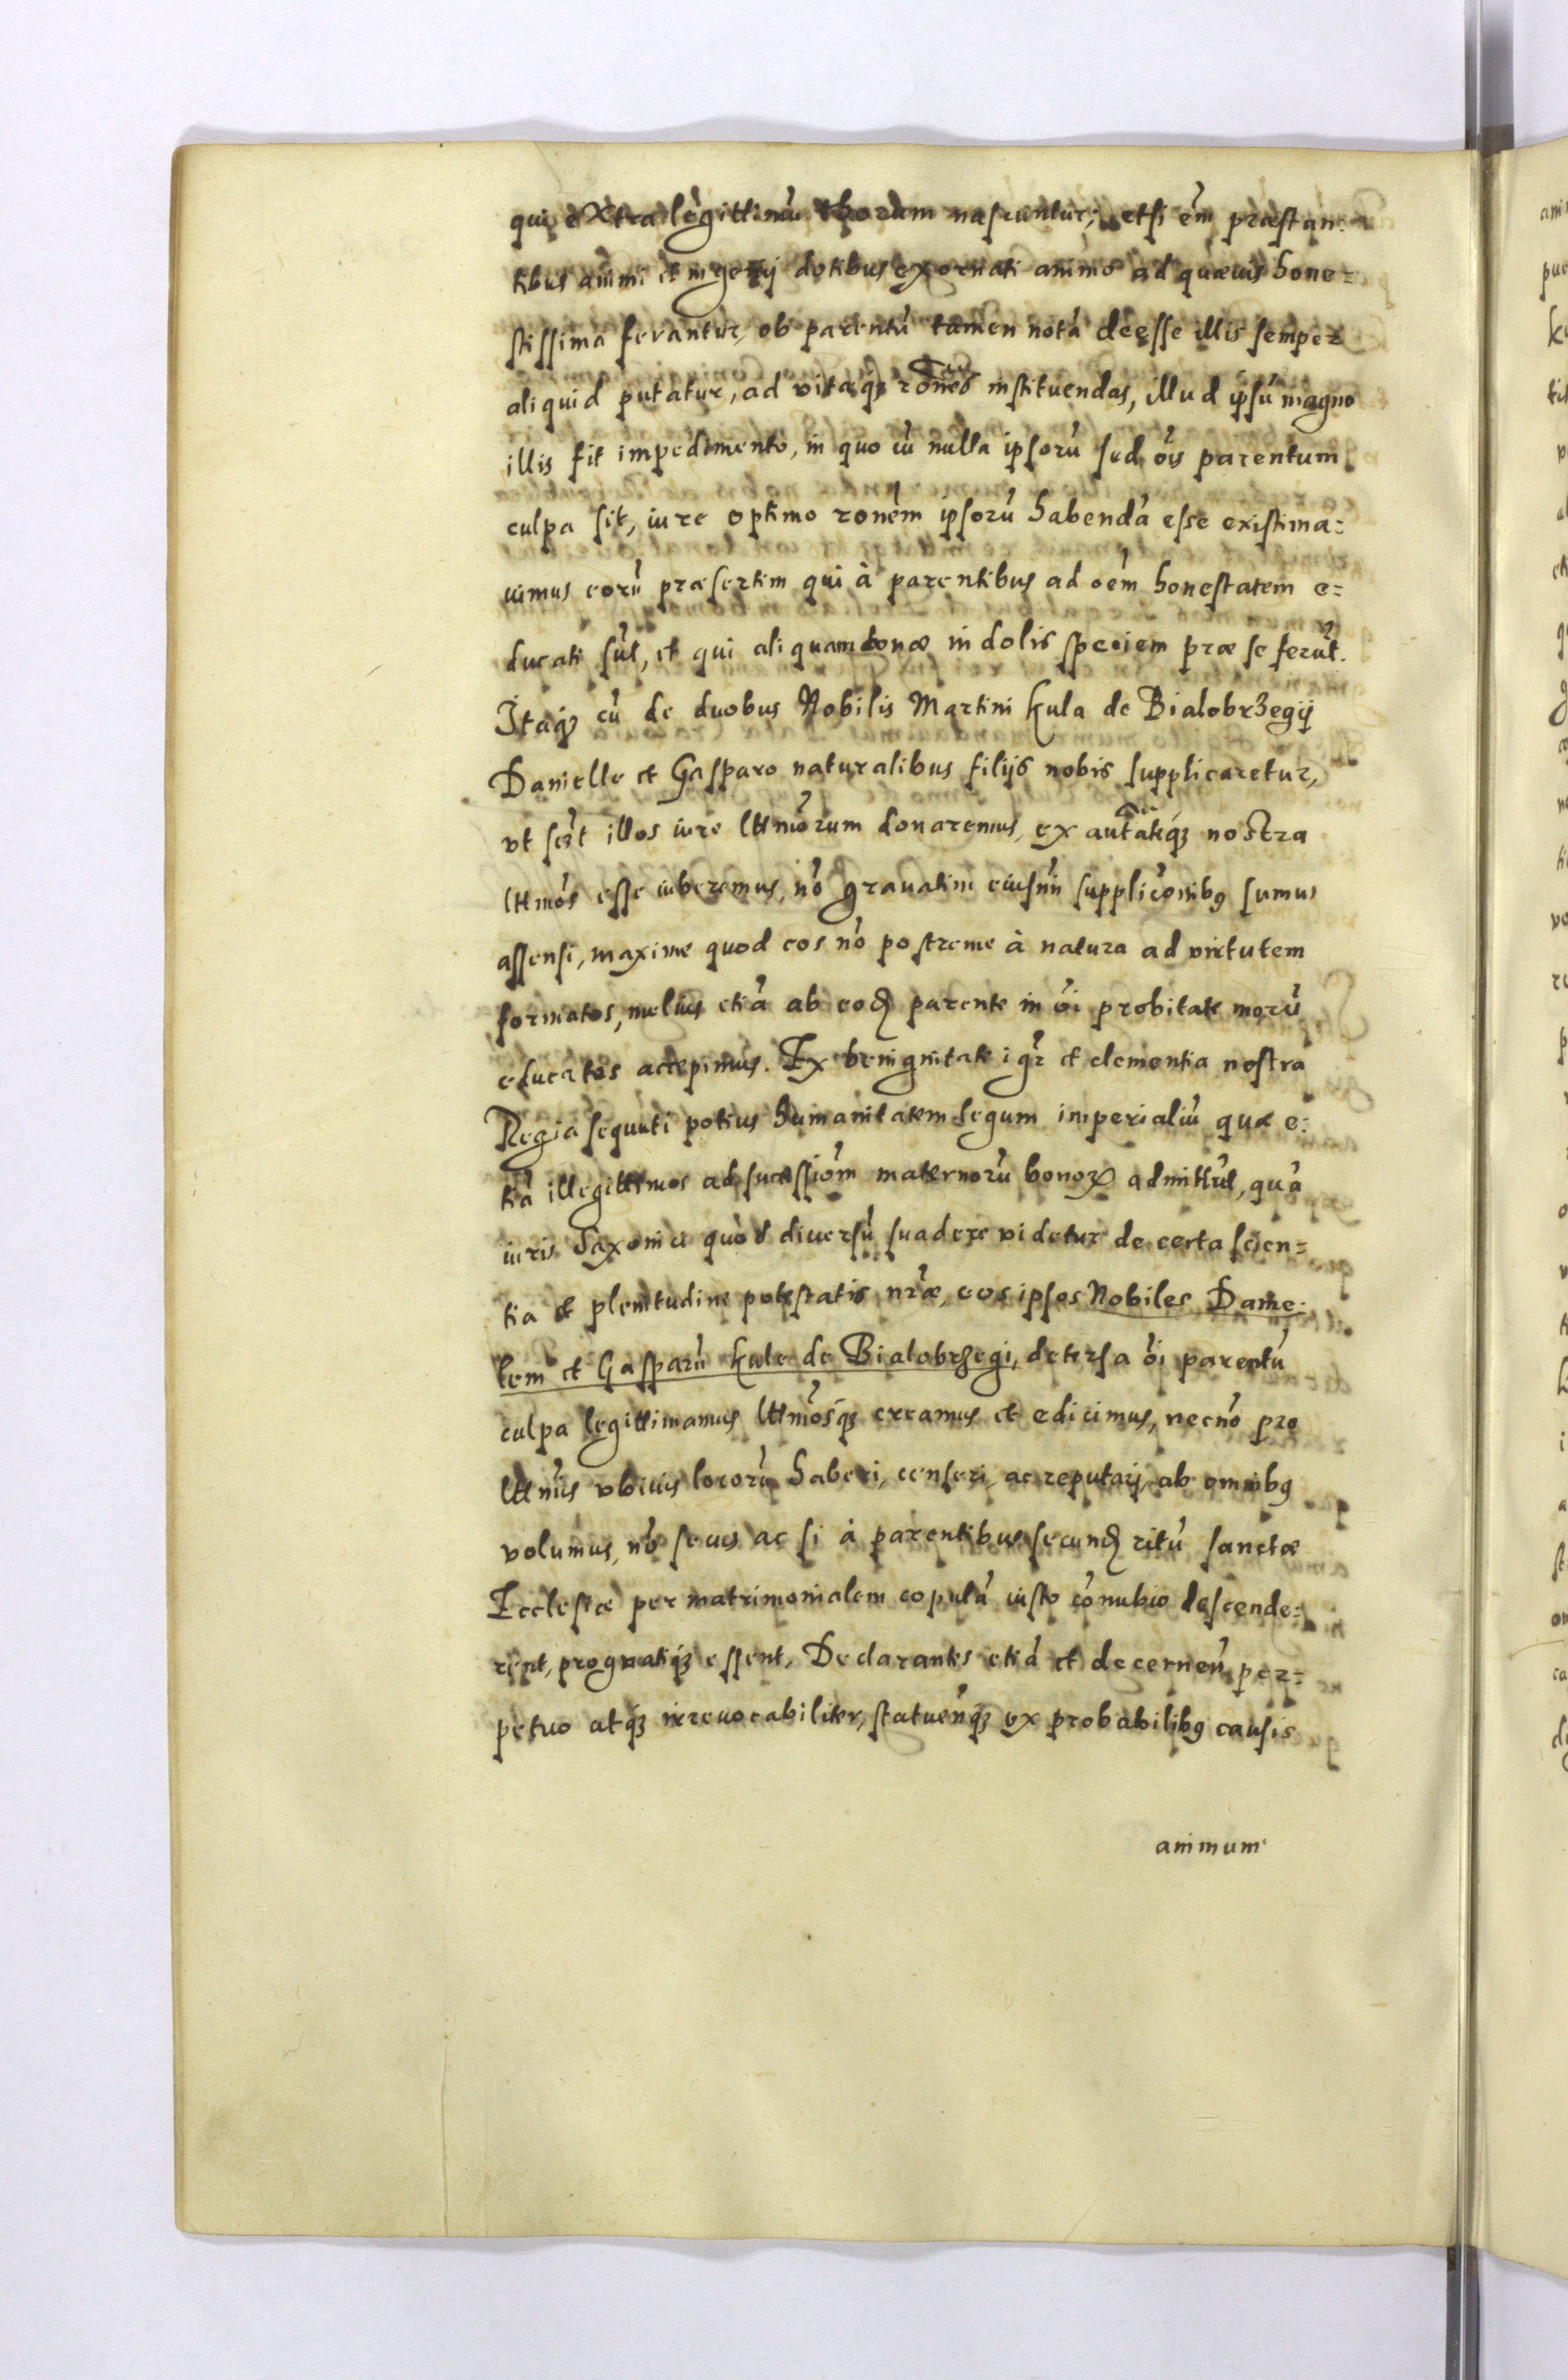 qui extra legittimũ thorum nascuntur, etsi em̃ præstan:
tibus animi et ingenij dotibus exornati animo ad quævis hone=
stissima ferantur, ob parentũ tamen notã deesse illis semper
aliquid putatur, ad vitæq́ꝫ rões instituendas, illud ipsũ magno
illis fit impedimento, in quo cũ nulla ipsorũ sed õis parentum
culpa sit, iure optimo ronẽm ipsorũ habendã esse existima:
uimus eorũ præsertim qui à parentibus ad oẽm honestatem e=
ducati sũt, et qui aliquam bonæ indolis speciem præ se ferũt.
Itaq́ꝫ cũ de duobus Nobilis Martini Kula de Bialobrzegij
Danielle et Gasparo naturalibus filijs nobis supplicaretur,
vt sczt illos iure lttmõrum donaremus, ex auttateq́ꝫ nostra
lttmõs esse iuberemus, nõ grauatim eiusmi supplicõnibꝫ sumus
assensi, maxime quod eos nõ postreme à natura ad virtutem
formatos, melius etiã ab eodẽ parente in õi probitate morũ
educatos accepimus. Ex benignitate igr̃ et clementia nostra
Regia sequuti potius humanitatem legum imperialiũ quæ e:
tiã illegittimos ad successiõm maternorũ bonorꝫ admittũt, quã
iuris Saxonici quod diuersũ suadere videtur de certa scien=
tia et plenitudine potestatis nr̃æ, eos ipsos Nobiles Danie:
lem et Gasparũ Kula de Bialobrzegi, detersa õi parentũ
culpa legittimamus lttmõsq́ꝫ creamus et edicimus, necnõ pro
lttmis vbiuis locorũ haberi, censeri, ac reputarj, ab omnibꝫ
volumus, nõ secus ac si à parentibus secundẽ ritũ sanctæ
Ecclesiæ per matrimonialem copulã iusto cõnubio descende=
rent, prognatiq́ꝫ essent, Declarantes etiã et decernen̄ per=
petuo atq́ꝫ irreuocabiliter, statuenq́ꝫ ex probabilibꝫ causis
animum